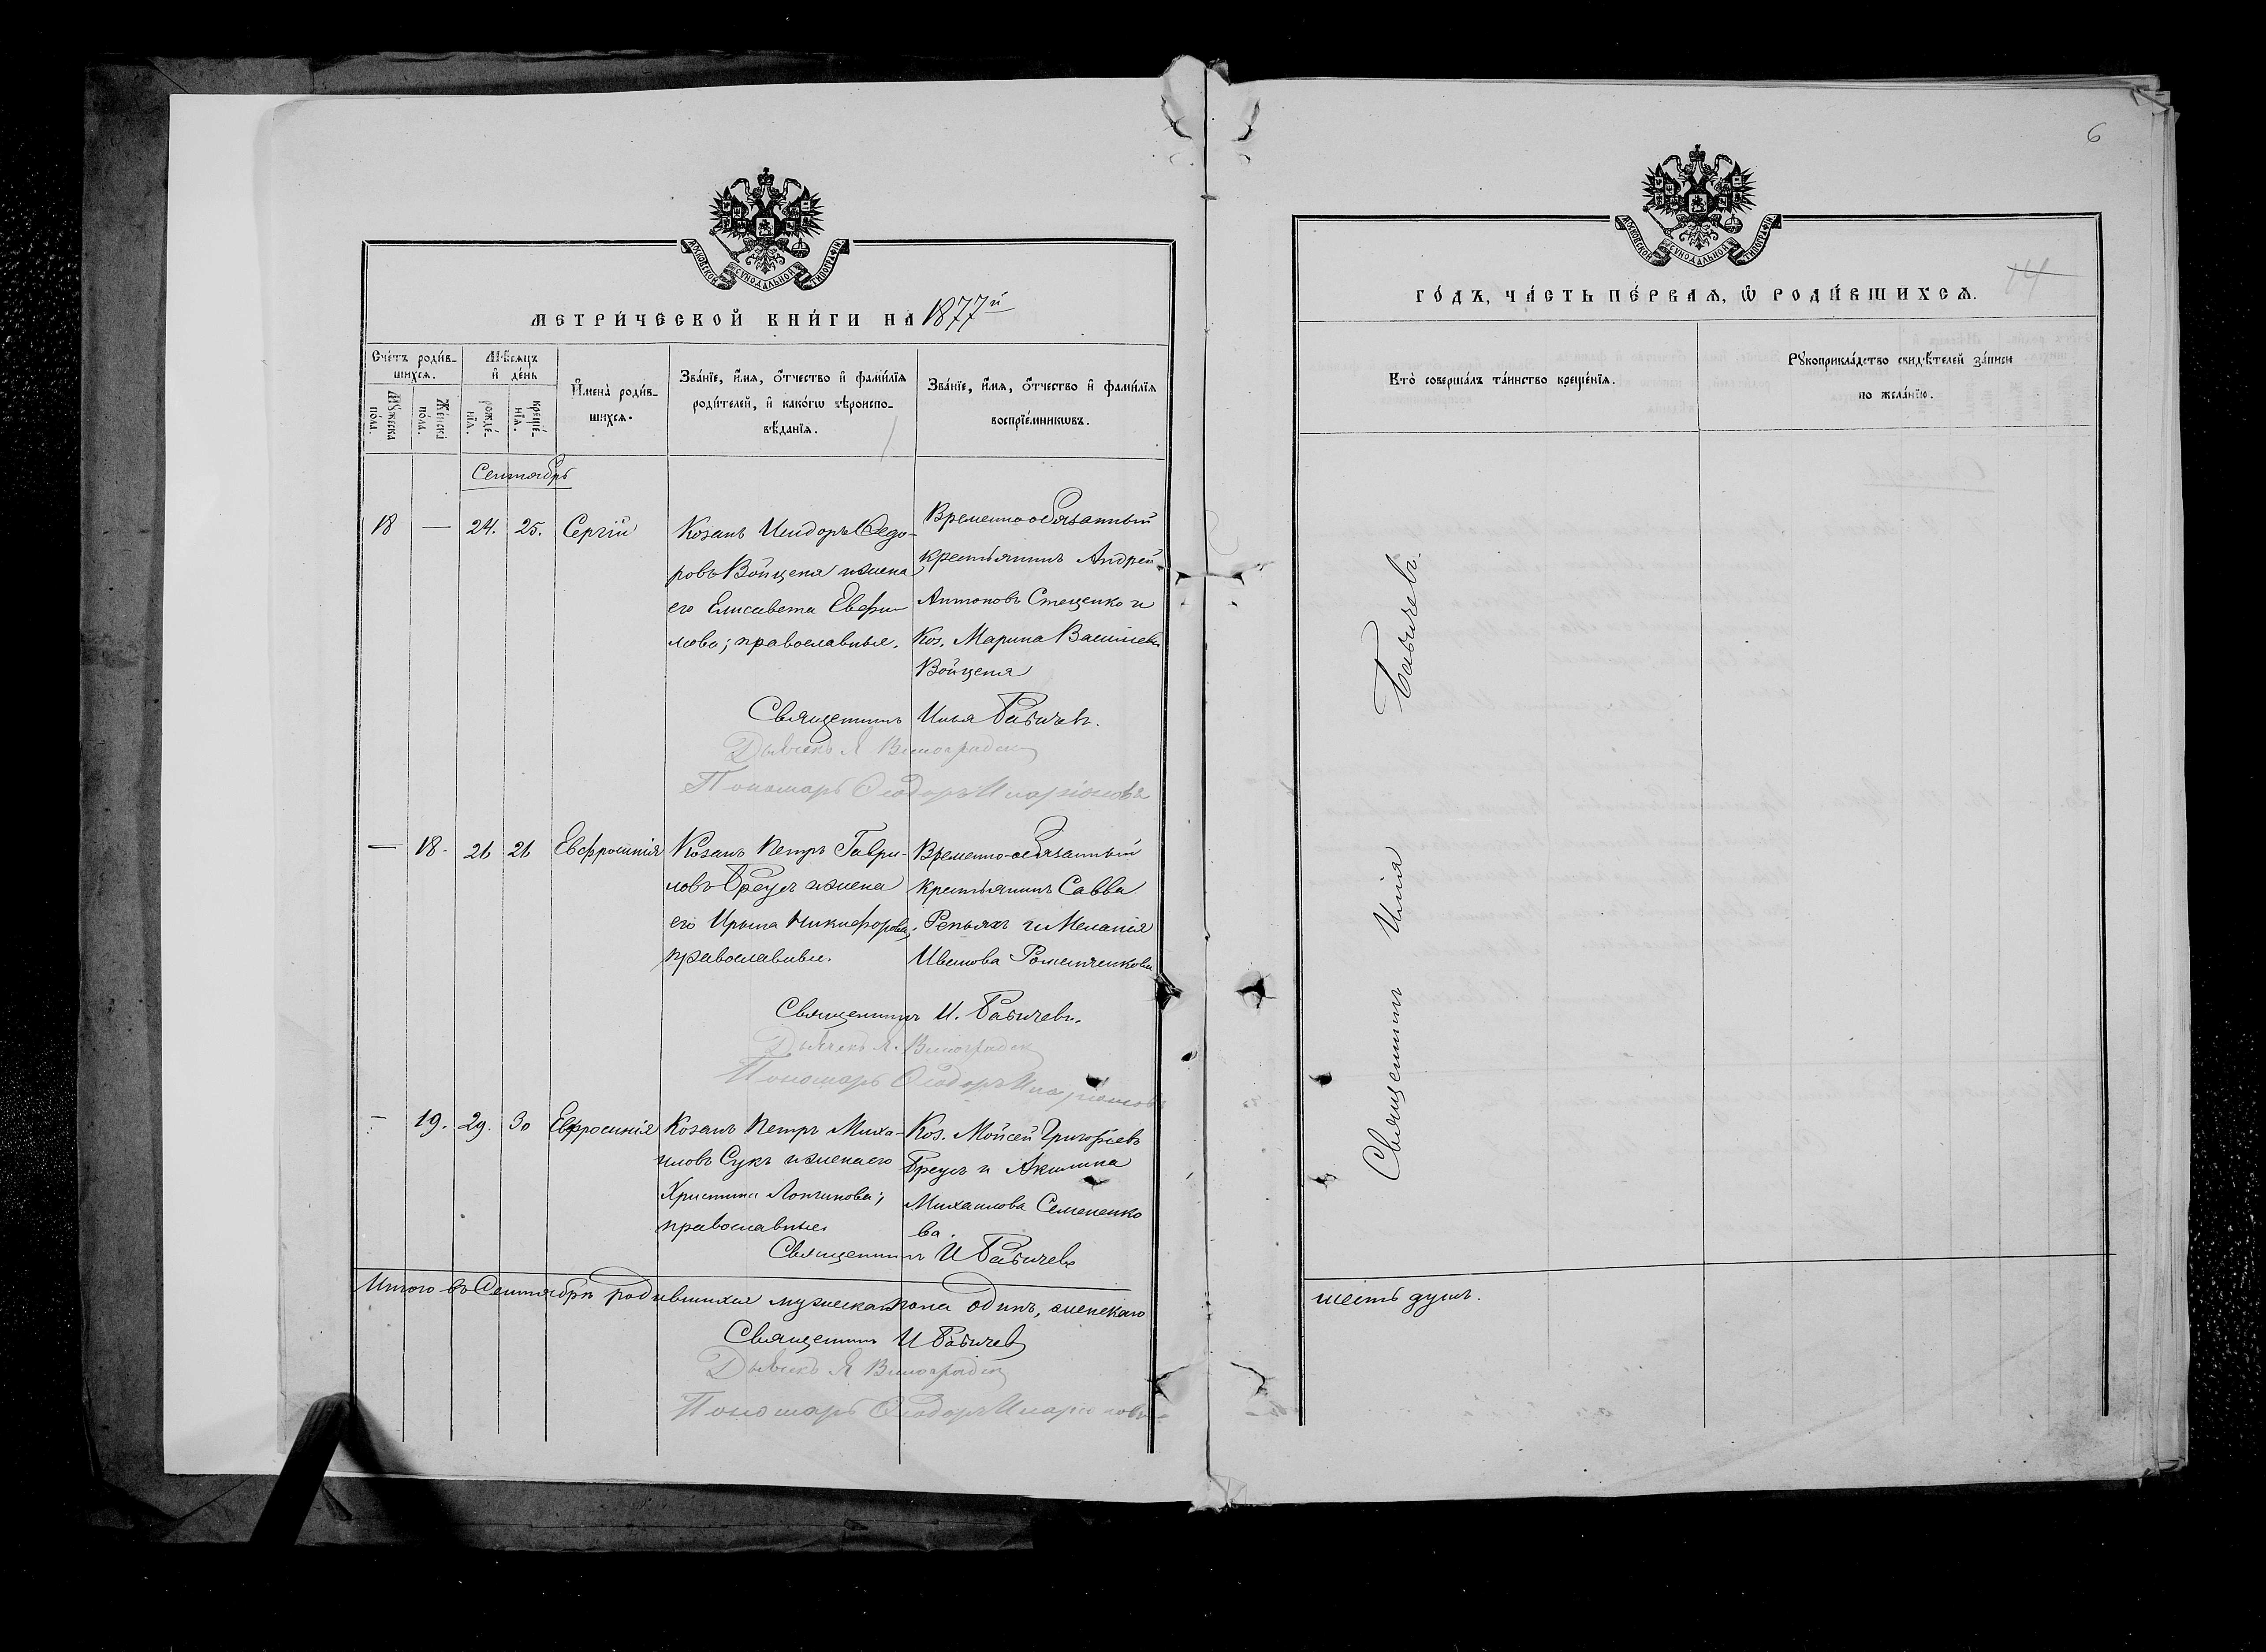 МОСКОВСКОЙ СУНОДАЛЬНОЙ ТИПОГРАФІИ
МЕТРИ́ЧЕСКОЙ КНИ́ГИ НА 1877й
Сче́тъ роди́в-
шихсѧ.
Мѣ́сѧцъ
и҆ де́нь
Мꙋ́жеска
по́ла.
Же́нска
по́ла.
рожде́-
нїѧ.
креще́-
нїѧ.
И҆мена̀ роди́в-
шихсѧ.
Зва́нїе, и҆́мѧ, ѻ҆́тчество и҆ фами́лїѧ
роди́телей, и҆ како́гѡ вѣроиспо-
вѣ́данїѧ.
Зва́нїе, и҆́мѧ, ѻ҆́тчество и҆ фами́лїѧ
воспрїе́мникѡвъ.
Сентябрь
18 — 24. 25. Сергій
Козакъ Исидоръ Федо-
ровъ Войценя и жена
его Елисавета Евфи-
мова; православные.
Временно-обязанный
крестьянинъ Андрей
Антоновъ Стеценко и
Коз. Марина Васильева
Войценя
Священникъ Илья Бабичевъ.
Дьячекъ Я Виноградск
Пономарь Ѳеодоръ Иларіоновъ
— 18. 26 26 Евфросинія
Козакъ Петръ Гаври-
ловъ Бреусъ и жена
его Ирына Никифорова;
православные.
Временно-обязанный
крестьянинъ Савва
Репьяхъ и Меланія
Иванова Роменченкова
Священникъ И. Бабичевъ.
Дьячекъ Я. Виноградск
Пономарь Ѳеодоръ Иларіоновъ
— 19. 29. 30 Евфросинія
Козакъ Петръ Миха-
иловъ Сукъ и жена его
Христина Лонгинова;
православные
Коз. Мойсей Григоріевъ
Бреусъ и Акилина
Михаилова Семененко
ва.
Священникъ И Бабичевъ
Итого въ Сентябрѣ родившихся мужеска пола одинъ, женскаго
Священникъ И Бабичев
Дьячекъ Я Виноградск
Пономарь Ѳеодоръ Иларіоновъ
6
14
МОСКОВСКОЙ СУНОДАЛЬНОЙ ТИПОГРАФІИ
ГО́ДЪ, ЧА́СТЬ ПЕ́РВАѦ, Ѡ҆ РОДИ́ВШИХСѦ.
Кто̀ соверша́лъ та́инство креще́нїѧ.
Рꙋкоприкла́дство свидѣ́телей за́писи
по жела́нїю.
Священникъ Илія Бабичевъ.
шесть душъ.